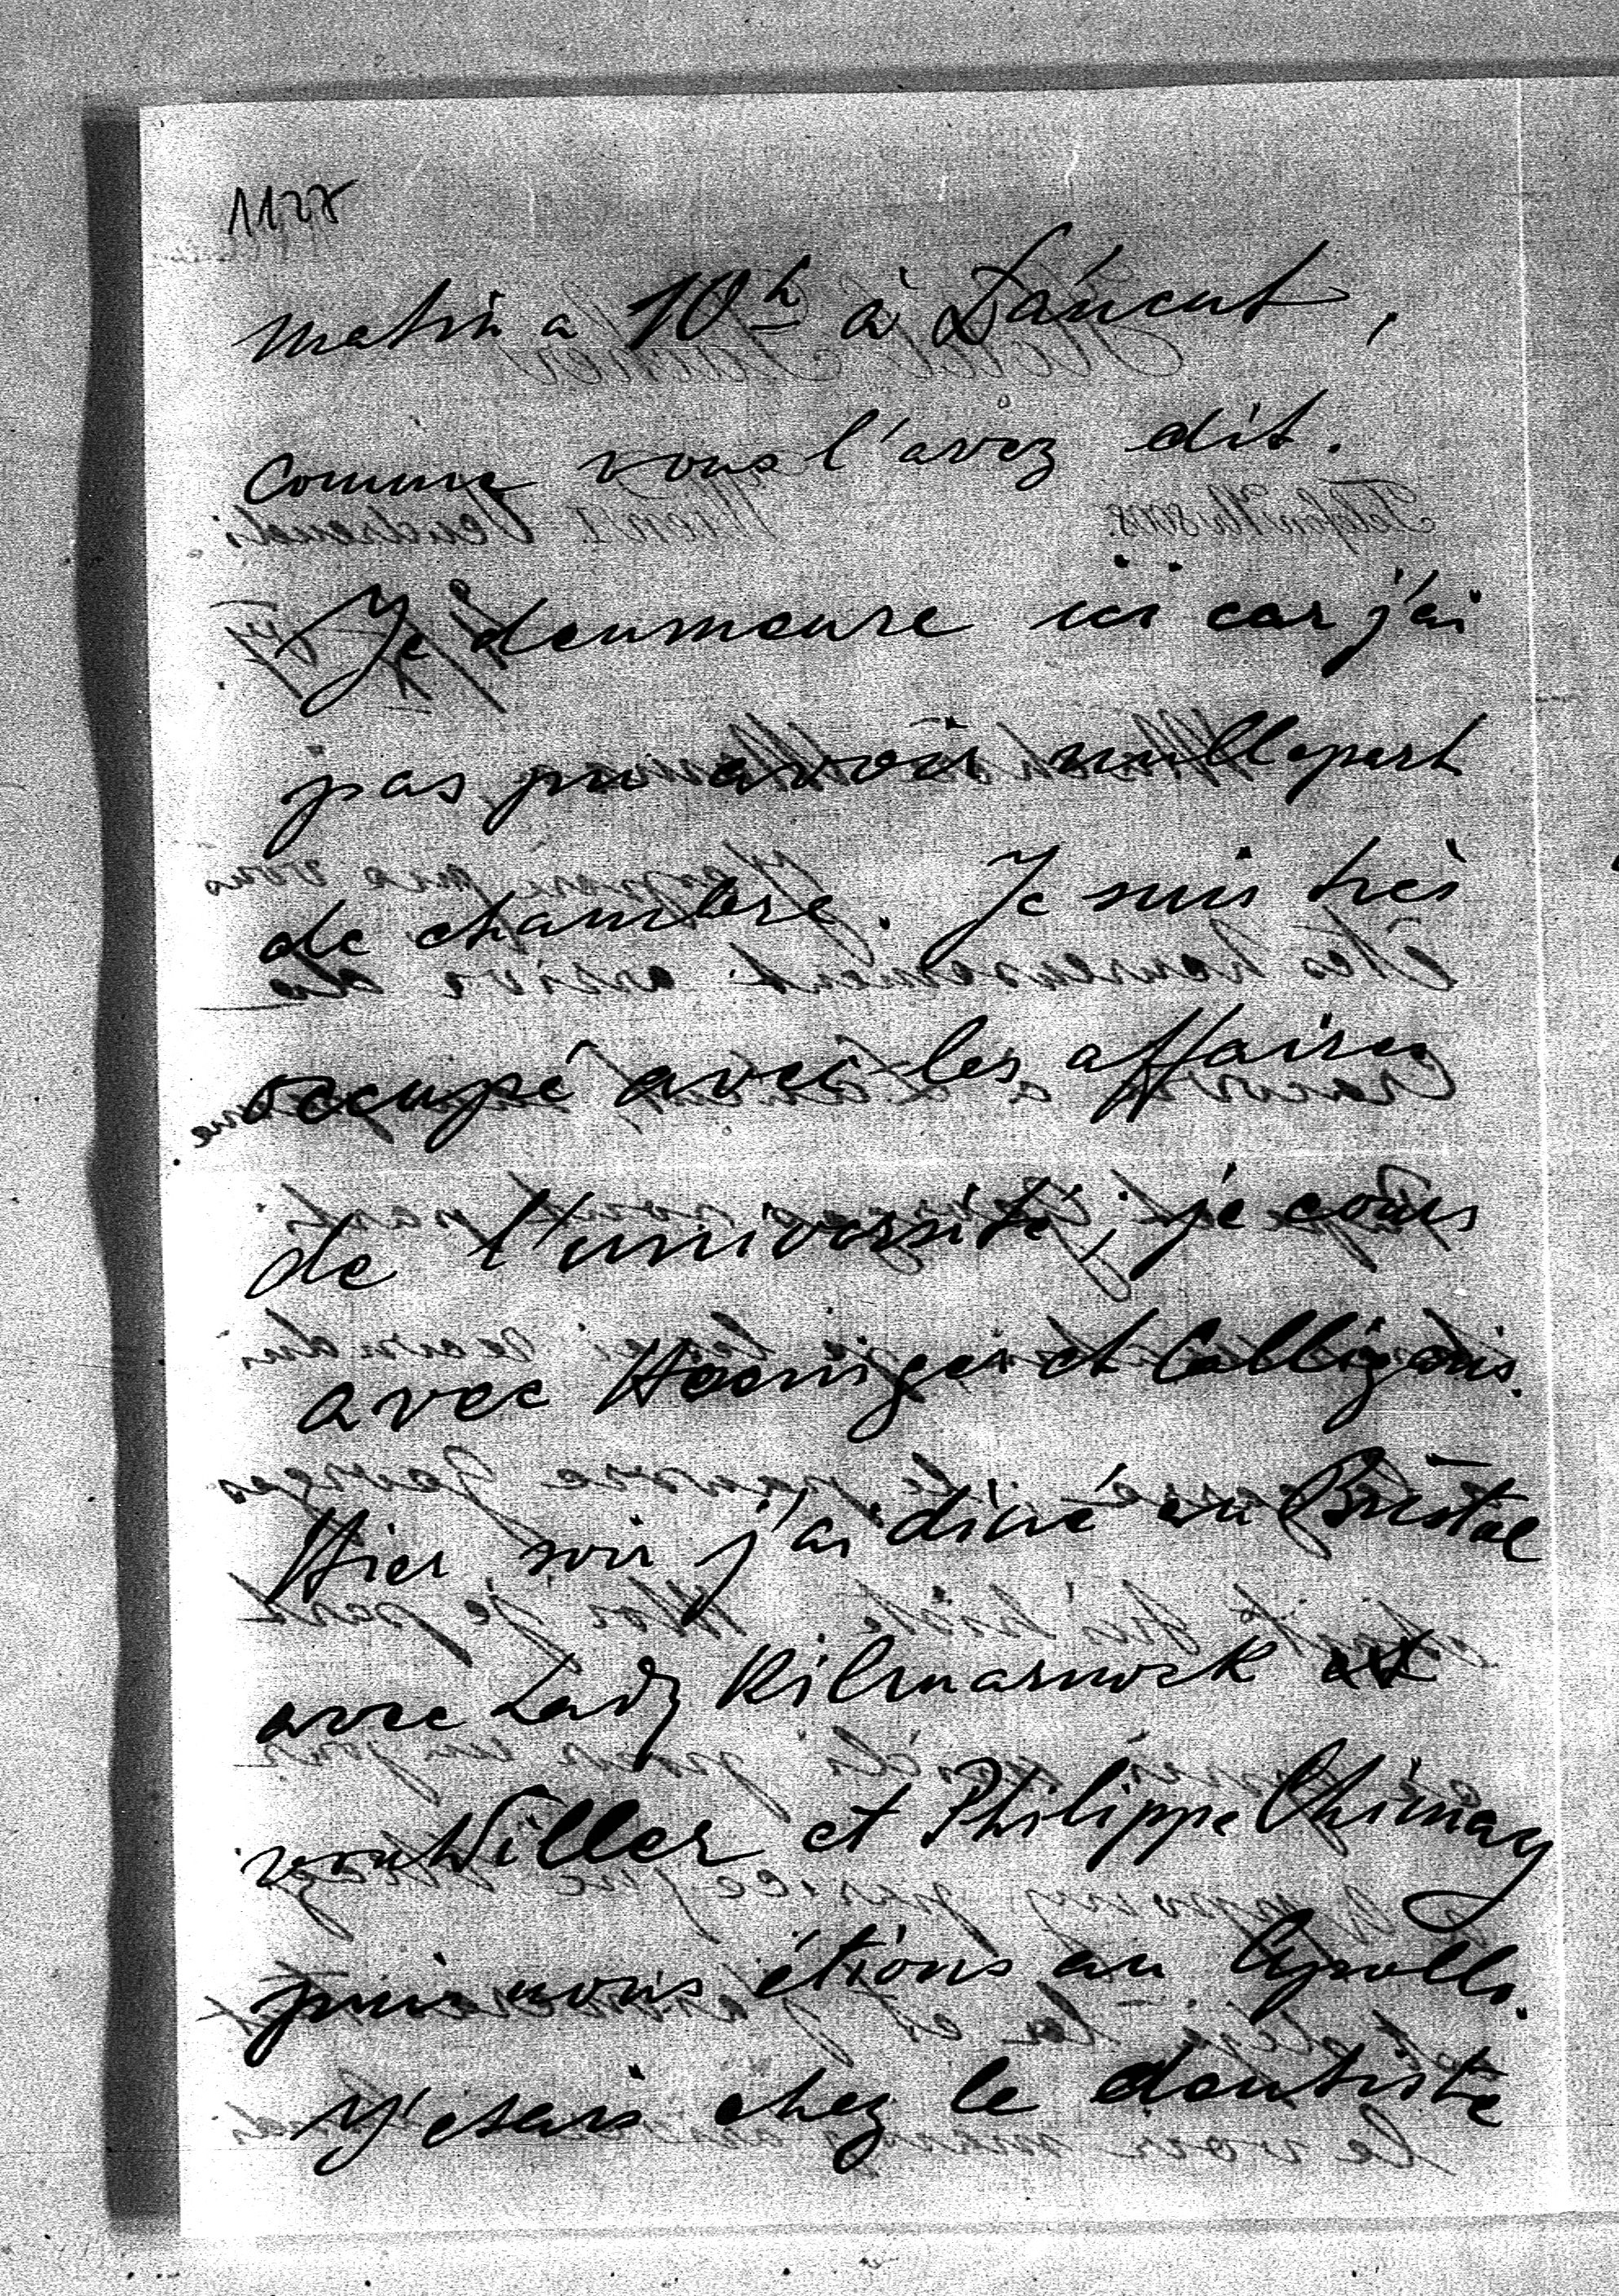 1127
matin a 10h à Łańcut,
comme vous l'avez dit.
Je deumeure ici car j'ai
pas pu avoir nullepart
de chambre. Je suis très
occupé avec les affaires
de l'université, je cours
avec Hoeniger et Calligaris.
Hier soir j'ai diné au Bristol
avec Lady Kilmarnock et
von Willer et Philippe Chimay
puis nous étions au Apollo.
J'etais chez le dentiste